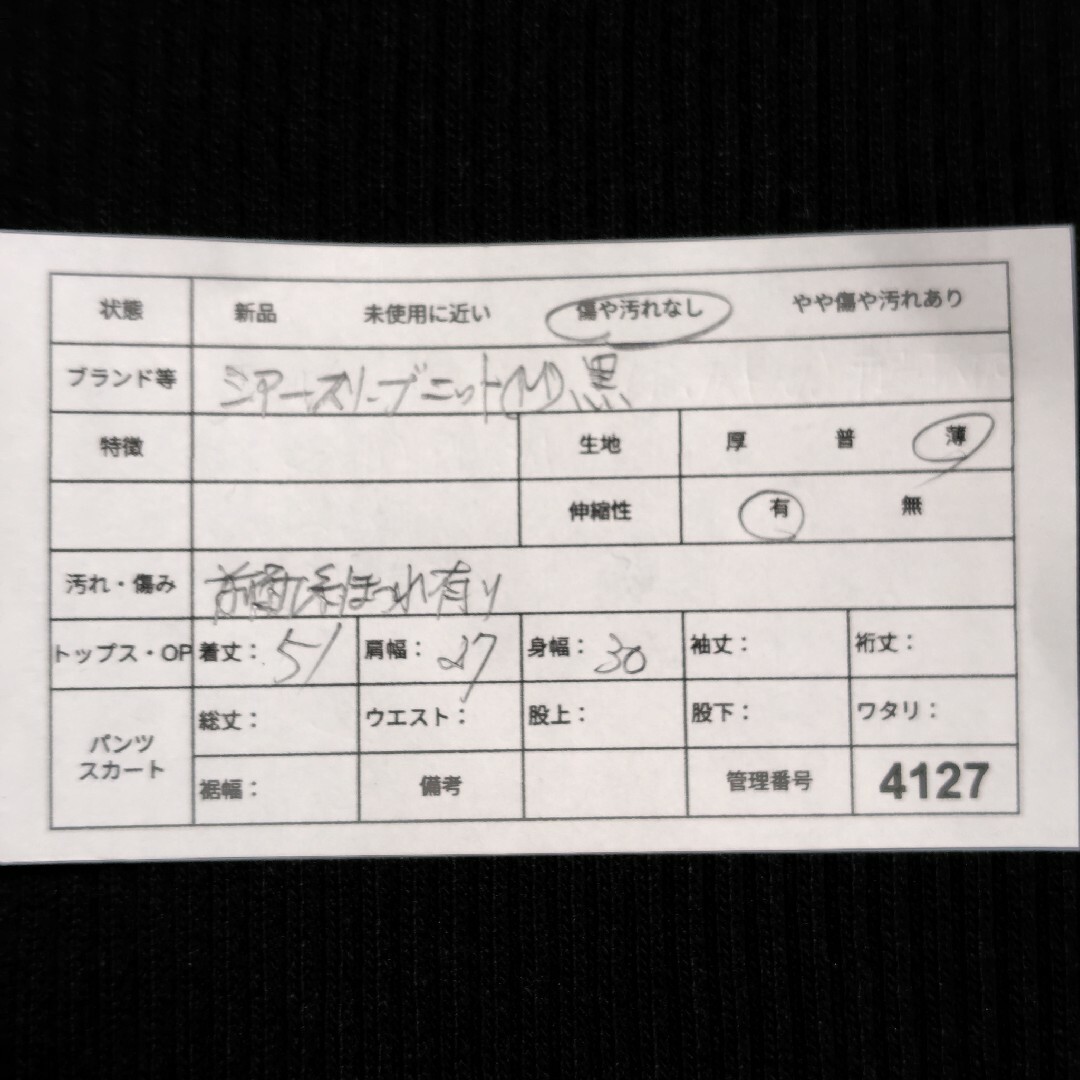 状態 新品 未使用に近い 傷や汚れなし やや傷や汚れあり
ブランド等 シアースリーブニット(M) 黒
特徴 生地 厚 普 薄
伸縮性 有 無
汚れ・傷み 前面に糸ほつれ有り
トップス・OP 着丈: 51 肩幅: 27 身幅: 30 袖丈: 裄丈:
パンツ スカート 総丈: ウエスト: 股上: 股下: ワタリ:
裾幅: 備考 管理番号 4127